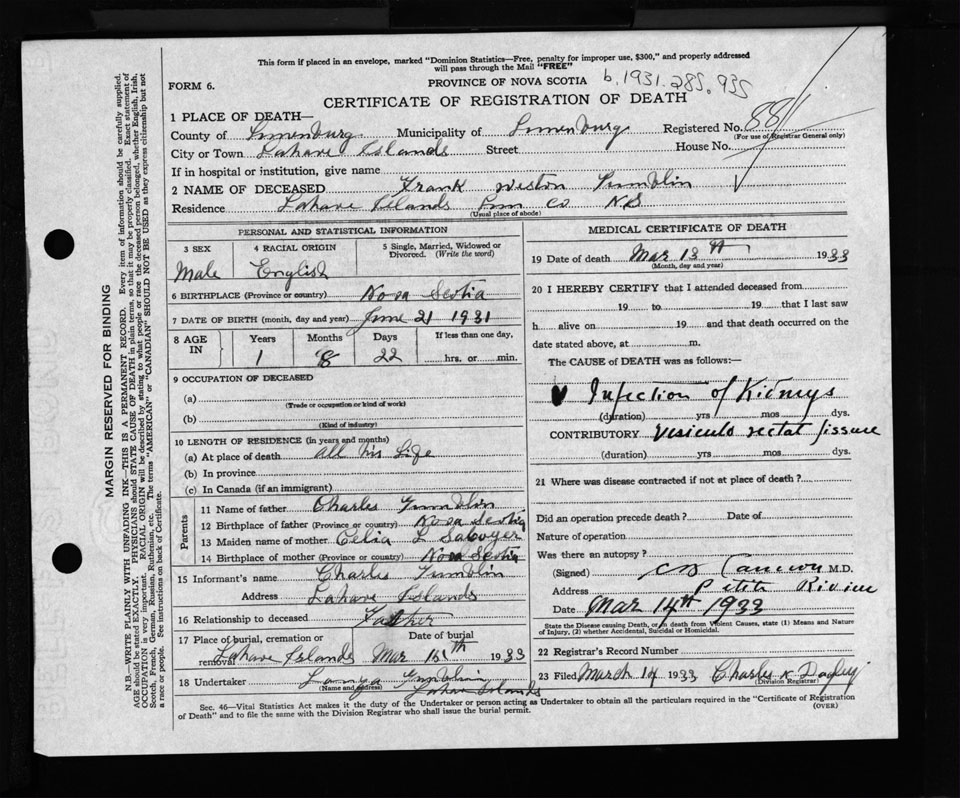 This form if placed in an envelope, marked "Dominion Statistics—Free, penalty for improper use, $300," and properly addressed
will pass through the Mail "FREE"
FORM 6. PROVINCE OF NOVA SCOTIA b.1931.285.935
CERTIFICATE OF REGISTRATION OF DEATH
1 PLACE OF DEATH—
County of Lunenburg Municipality of Lunenburg Registered No. 881
(For use of Registrar General only)
City or Town Lahave Islands Street House No.
If in hospital or institution, give name
2 NAME OF DECEASED Frank Weston
Residence Lahave Islands Lun Co N.S
(Usual place of abode)
PERSONAL AND STATISTICAL INFORMATION
3 SEX 4 RACIAL ORIGIN 5 Single, Married, Widowed or
Divorced. (Write the word)
Male English
6 BIRTHPLACE (Province or country) Nova Scotia
7 DATE OF BIRTH (month, day and year) June 21 1931
8 AGE IN Years Months Days If less than one day,
1 8 22 hrs. or min.
9 OCCUPATION OF DECEASED
(a)
(Trade or occupation or kind of work)
(b)
(Kind of industry)
10 LENGTH OF RESIDENCE (in years and months)
(a) At place of death all his Life
(b) In province
(c) In Canada (if an immigrant)
Parents
11 Name of father Charles
12 Birthplace of father (Province or country) Nova Scotia
13 Maiden name of mother Celia L
14 Birthplace of mother (Province or country) Nova Scotia
15 Informant's name Charles
Address Lahave Islands
16 Relationship to deceased Father
17 Place of burial, cremation or Date of burial
removal Lahave Islands Mar 15th 1933
18 Undertaker
(Name and address) Lahave Islands
MEDICAL CERTIFICATE OF DEATH
19 Date of death Mar 13th 1933
(Month, day and year)
20 I HEREBY CERTIFY that I attended deceased from
19 to 19 that I last saw
h alive on 19 and that death occurred on the
date stated above, at m.
The CAUSE of DEATH was as follows:—
Infection of Kidneys
(duration) yrs mos dys.
CONTRIBUTORY Vesiculo rectal fissure
(duration) yrs mos dys.
21 Where was disease contracted if not at place of death?
Did an operation precede death? Date of
Nature of operation
Was there an autopsy?
(Signed) Cameron M.D.
Address Petite Riviere
Date Mar 14th 1933
State the Disease causing Death, or in death from Violent Causes, state (1) Means and Nature
of Injury, (2) whether Accidental, Suicidal or Homicidal.
22 Registrar's Record Number
23 Filed March 14 1933 Charles
Division Registrar)
Sec. 46—Vital Statistics Act makes it the duty of the Undertaker or person acting as Undertaker to obtain all the particulars required in the "Certificate of Registration
of Death" and to file the same with the Division Registrar who shall issue the burial permit. (OVER)
MARGIN RESERVED FOR BINDING
N.B.—WRITE PLAINLY WITH UNFADING INK—THIS IS A PERMANENT RECORD. Every item of information should be carefully supplied.
AGE should be stated EXACTLY. PHYSICIANS should STATE CAUSE OF DEATH in plain terms, so that it may be properly classified. Exact statement of
OCCUPATION is very important. RACIAL ORIGIN will be described by stating to what people or race the deceased person belonged, whether English, Irish,
Scotch, French, German, Russian, Ruthenian, etc. The terms "AMERICAN" or "CANADIAN" SHOULD NOT BE USED as they express citizenship but not
a race or people. See instructions on back of Certificate.